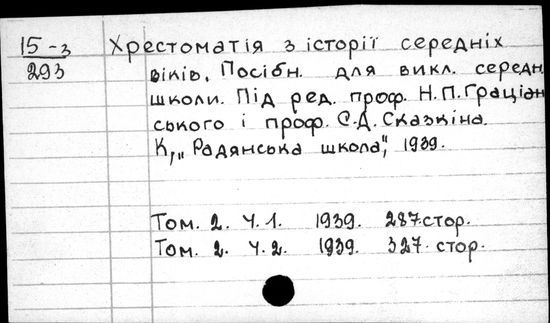 15-з Хрестоматія з історії середніх
293 віків. Посібн. для викл. середн.
школи. Під ред. проф. Н.П. Граціан
ського і проф. С.Д. Сказкіна.
К, „Радянська школа", 1939.
Том. 2. Ч.1. 1939. 287 стор.
Том. 2. Ч.2. 1939. 327 стор.